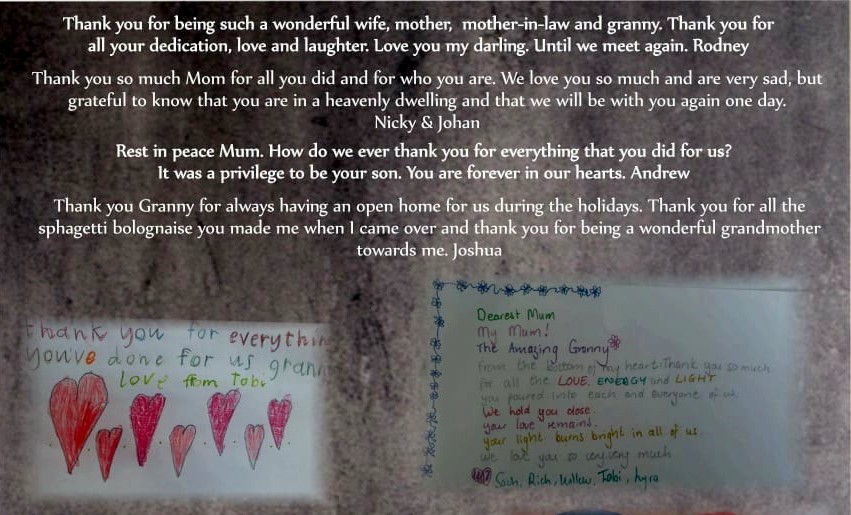 Thank you for being such a wonderful wife, mother, mother-in-law and granny. Thank you for
all your dedication, love and laughter. Love you my darling. Until we meet again. Rodney
Thank you so much Mom for all you did and for who you are. We love you so much and are very sad, but
grateful to know that you are in a heavenly dwelling and that we will be with you again one day.
Nicky & Johan
Rest in peace Mum. How do we ever thank you for everything that you did for us?
It was a privilege to be your son. You are forever in our hearts. Andrew
Thank you Granny for always having an open home for us during the holidays. Thank you for all the
sphagetti bolognaise you made me when I came over and thank you for being a wonderful grandmother
towards me. Joshua
thank you for everythin
you've done for us grann
love from Tobi
Dearest Mum
My Mum!
The Amazing Granny
From the bottom of my heart Thank you so much
for all the LOVE, ENERGY and LIGHT
you poured into each and everyone of us.
We hold you close
your love remains.
your light burns bright in all of us.
we love you so very, very much
Rich, Willow, Tobi,